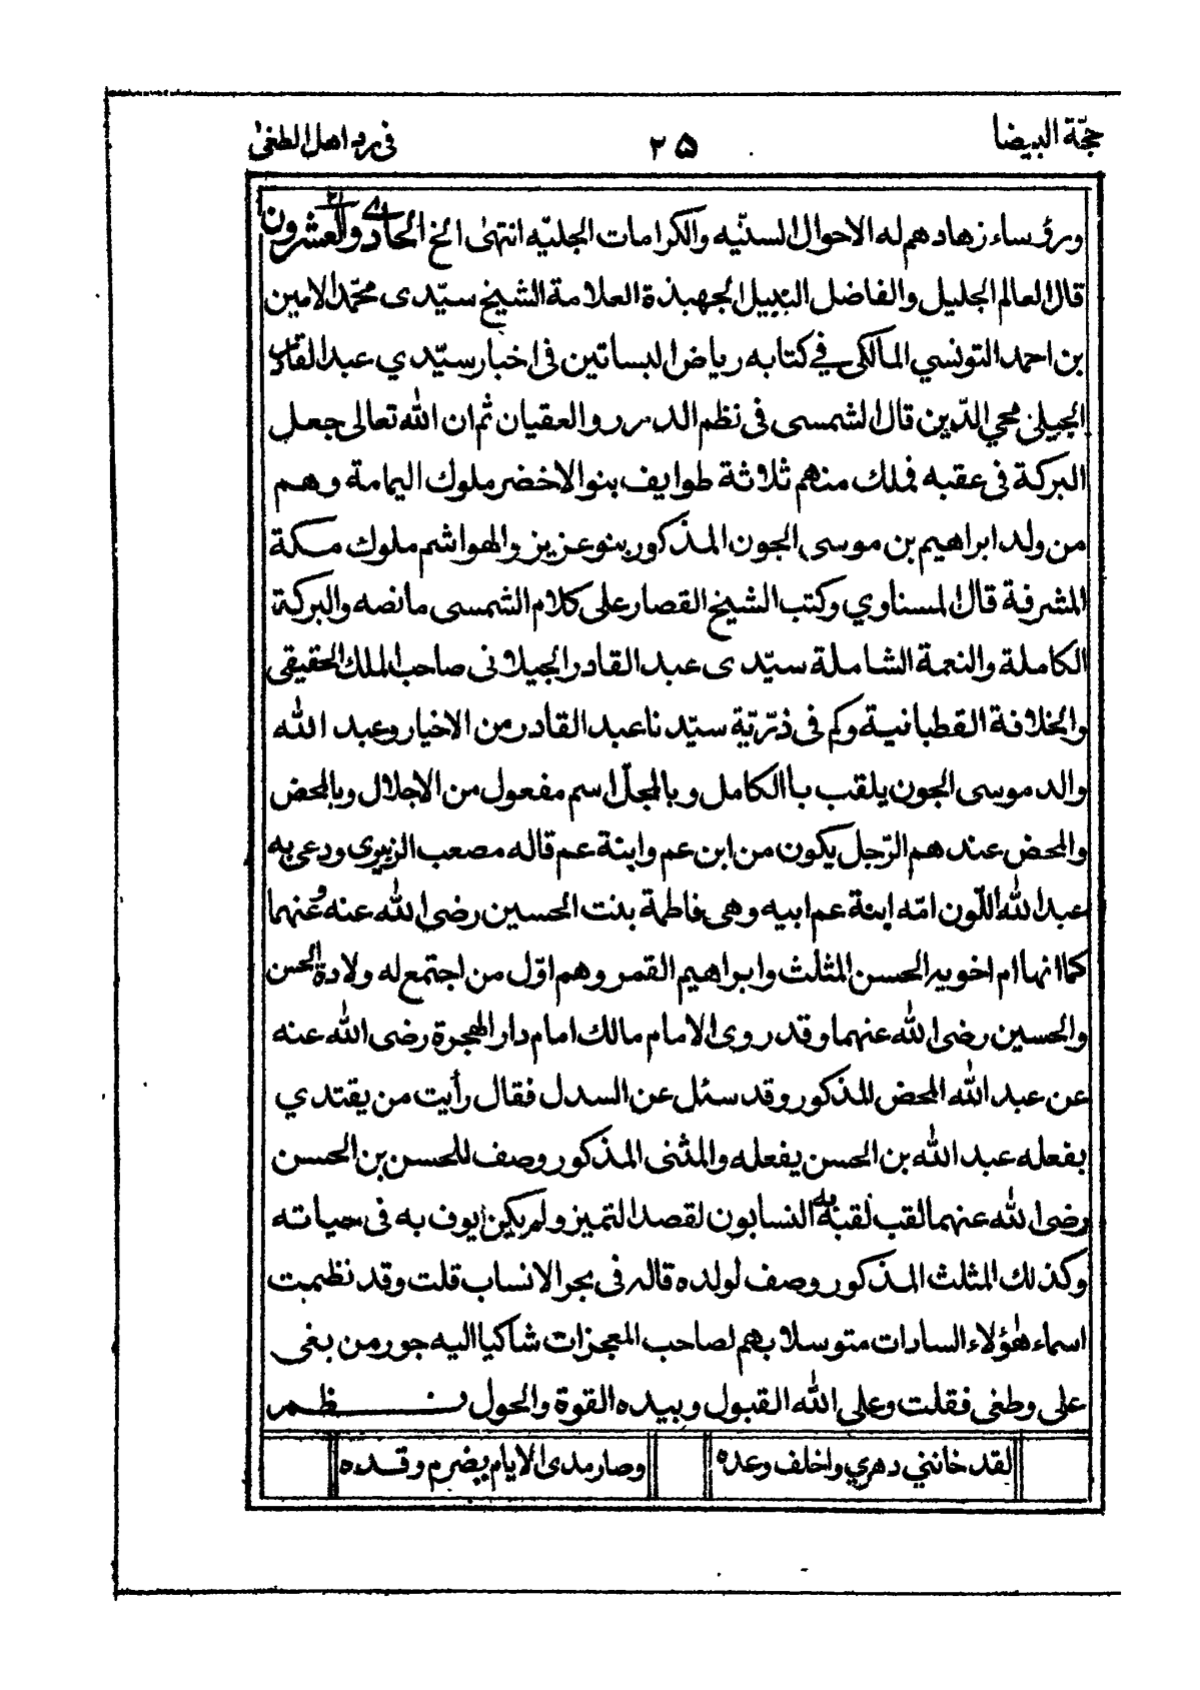 حجّة البيضا
٢٥
فى رد اهل الطغى
ورؤساء زهادهم له الاحوال السنّيه والكرامات الجليّه انتهىٰ الخ الحادي والعشرون ٢١
قال العالم الجليل والفاضل النبيل الجهبذة العلامة الشيخ سيّدى محمّد الامين
بن احمد التونسي المالكى في كتابه رياض البساتين فى اخبار سيّدي عبد القادر
الجيلى محي الدّين قال الشمسى فى نظم الدرر والعقيان ثم ان الله تعالى جعل
البركة فى عقبه فملك منهم ثلاثة طوايف بنو الاخضر ملوك اليمامة وهم
من ولد ابراهيم بن موسى الجون المذكور بنو عزيز والهواشم ملوك مكة
المشرفة قال المسناوي وكتب الشيخ القصار على كلام الشمسى ما نصه والبركة
الكاملة والنعمة الشاملة سيّدى عبد القادر الجيلانى صاحب الملك الحقيقى
والخلافة القطبانية وكم فى ذرّيّة سيّدنا عبد القادر من الاخيار وعبد الله
والد موسى الجون يلقب باالكامل وبالمجلّ اسم مفعول من الاجلال وبالمحض
والمحض عندهم الرّجل يكون من ابن عم وابنة عم قاله مصعب الزبيرى ودعى به
عبد الله اللّون امّه ابنة عم ابيه وهى فاطمة بنت الحسين رضى الله عنه وعنهما
كما انها ام اخويه الحسن المثلث وابراهيم القمر وهم اوّل من اجتمع له ولادة الحسن
والحسين رضى الله عنهما وقد روى الامام مالك امام دار الهجرة رضى الله عنه
عن عبد الله المحض المذكور وقد سئل عن السدل فقال رأيت من يقتدي
بفعله عبد الله بن الحسن يفعله والمثنى المذكور وصف للحسن بن الحسن
رضى الله عنهما لقب لقبه به النسابون لقصد التميز ولم يكن يوف به فى حياته
وكذلك المثلث المذكور وصف لولده قاله فى بحر الانساب قلت وقد نظمت
اسماء هٰؤلاء السادات متوسلا بهم لصاحب المعجزات شاكيا اليه جور من بغى
على وطغى فقلت وعلى الله القبول وبيده القوة والحول نظم
لقد خاننى دهري واخلف وعده
وصار مدى الايام يضرم وقده